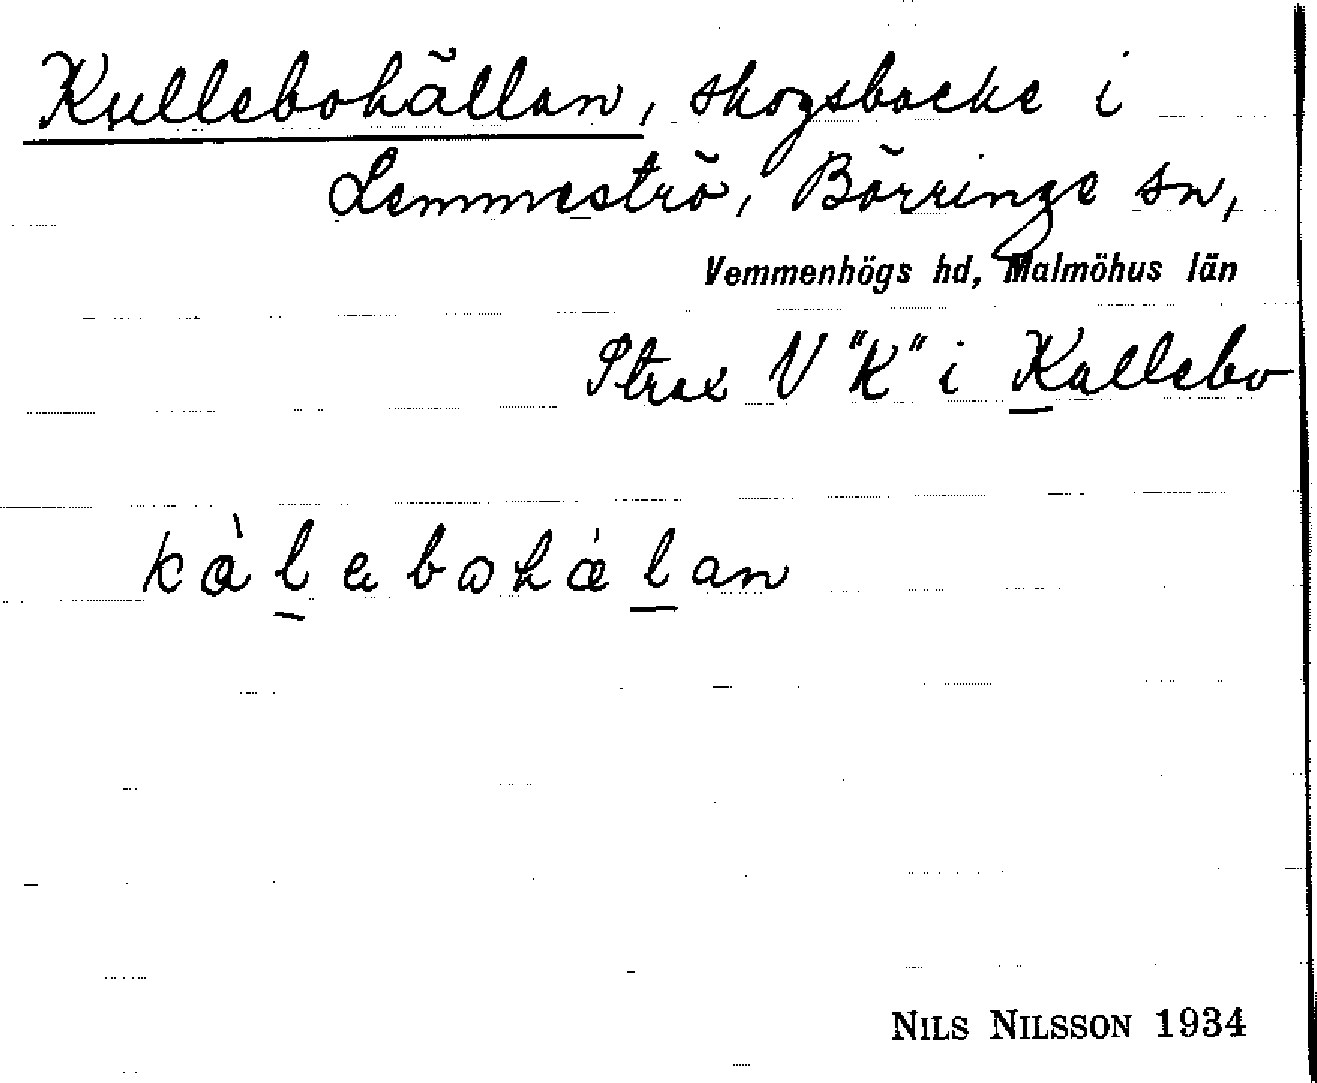 Kullebohällan, skogsbacke i
Lemmeströ, Börringe sn,
Vemmenhögs hd, Malmöhus län
Strax V "K" i Kallebo
kàlebohálan
NILS NILSSON 1934